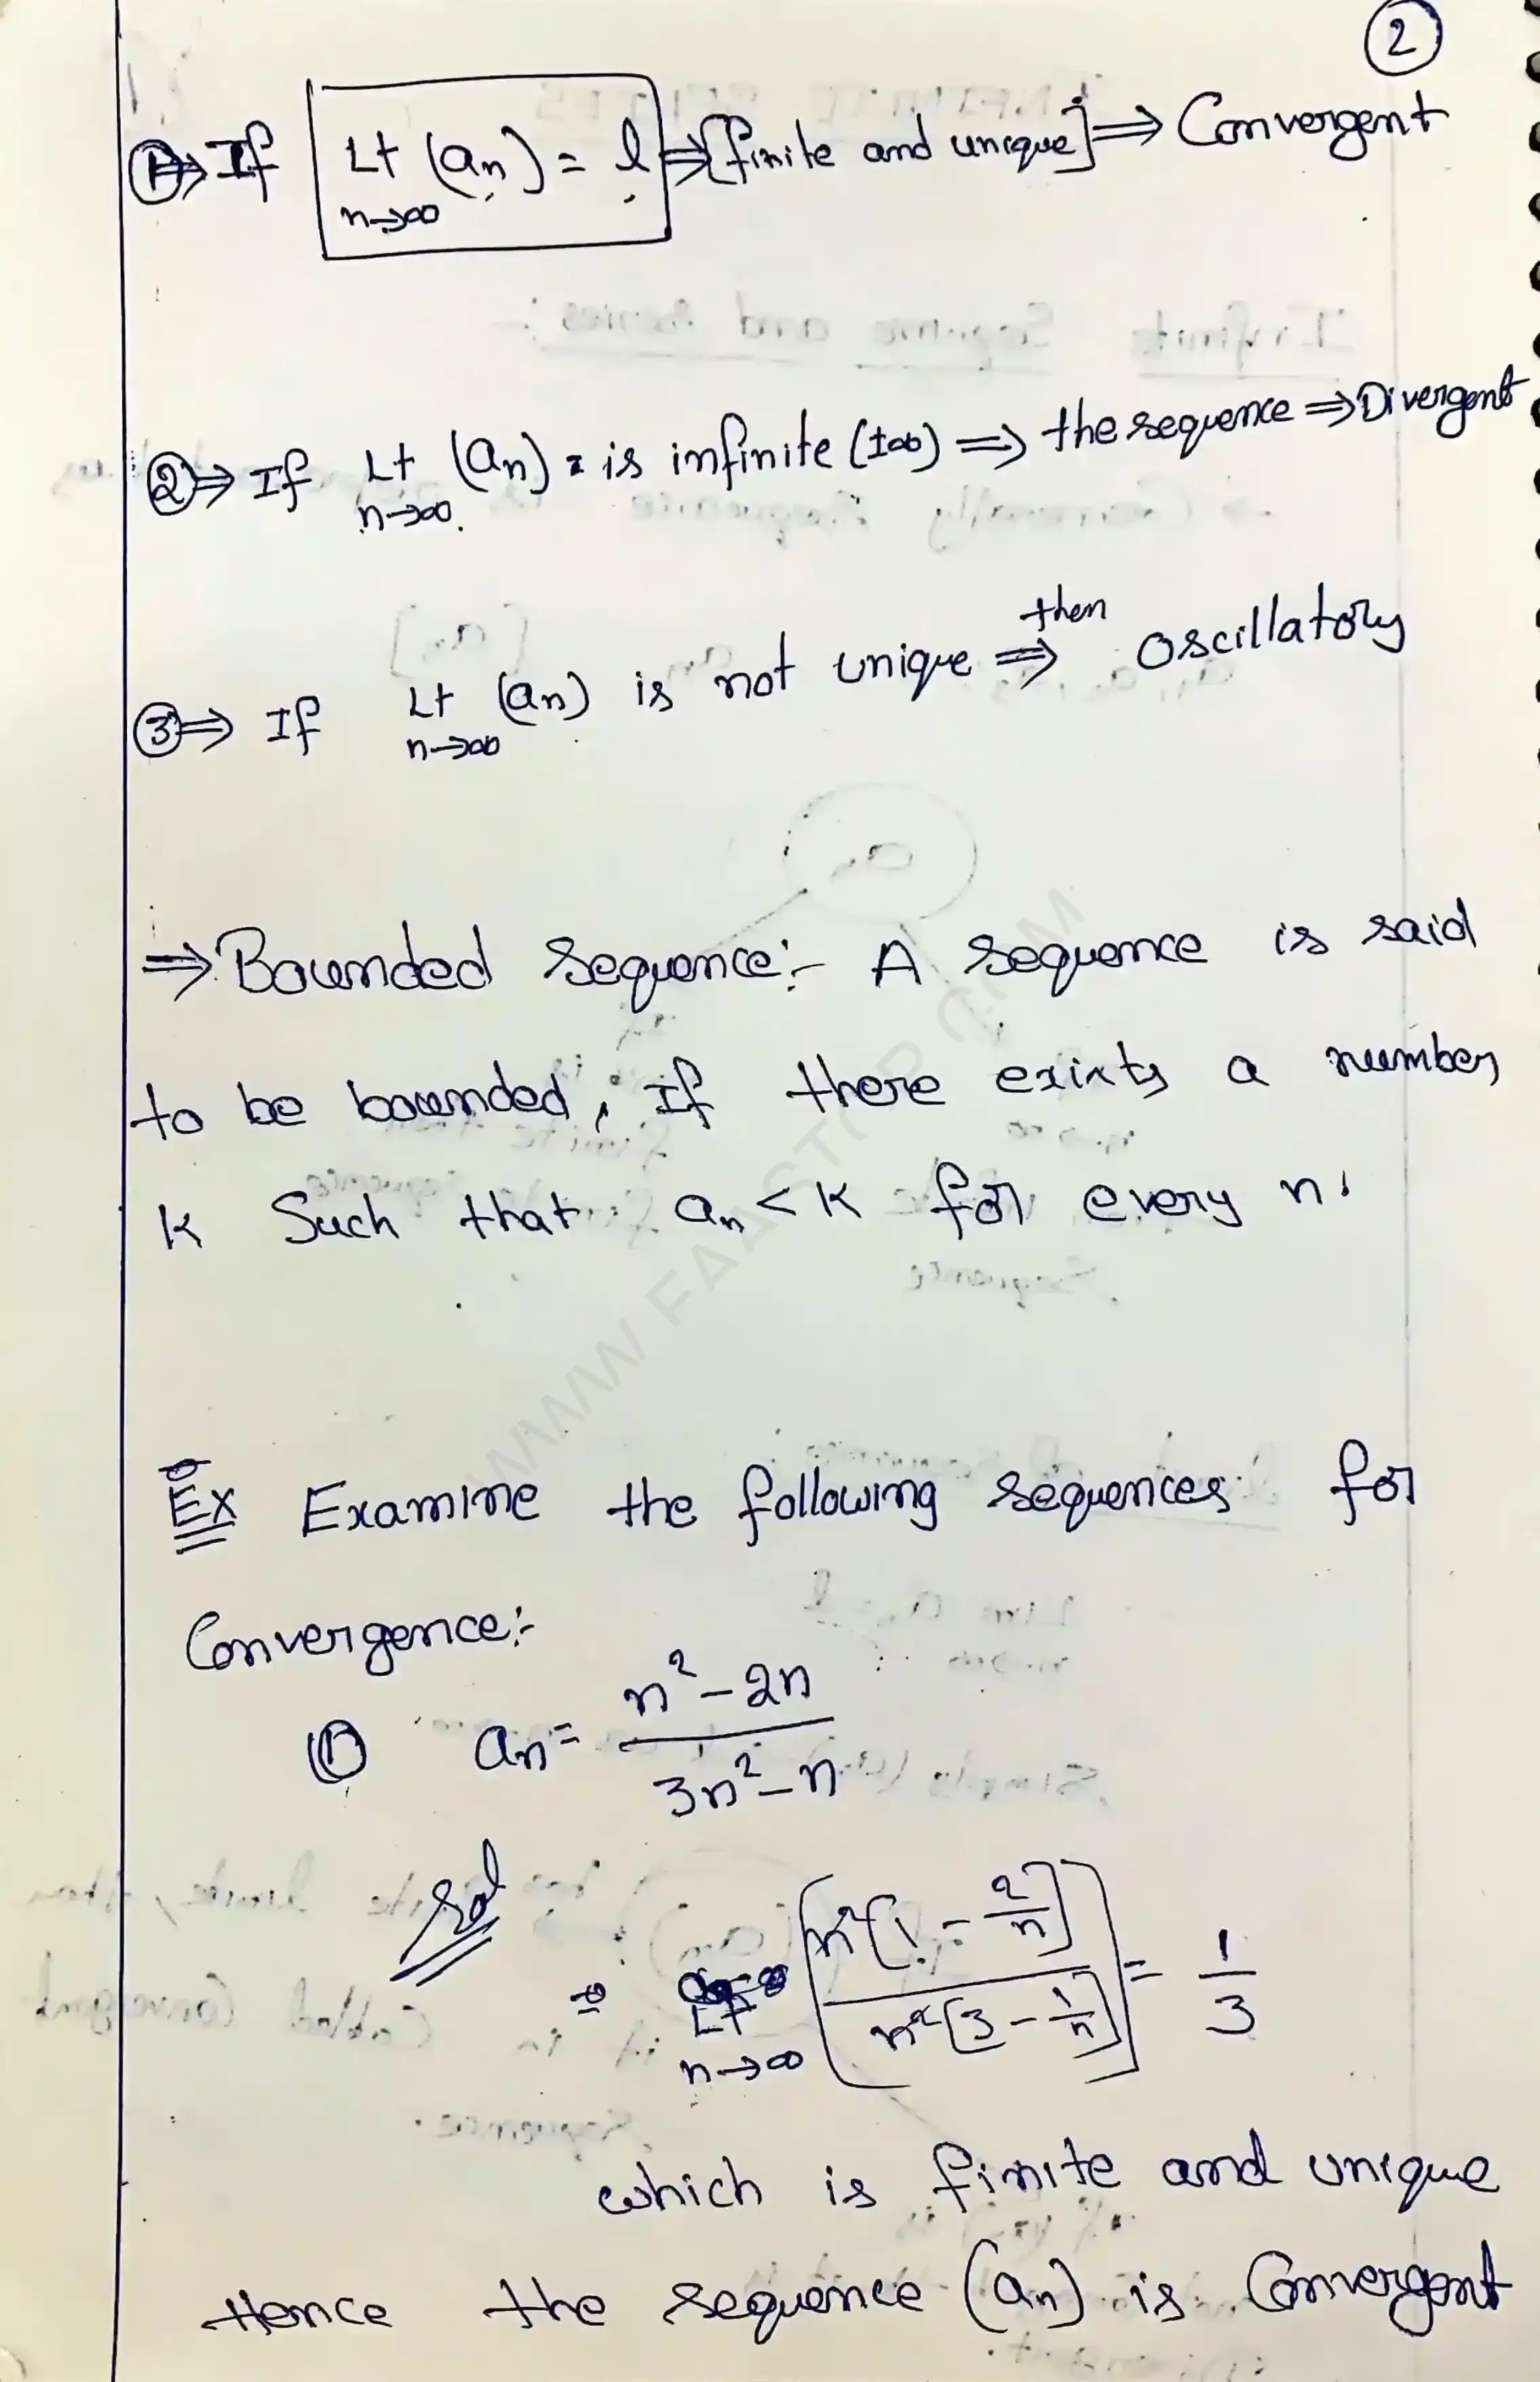 2
① ⇒ If Lt (aₙ) = l ⇒ [finite and unique] ⇒ Convergent
n→∞
② ⇒ If Lt (aₙ) is infinite (±∞) ⇒ the sequence ⇒ Divergent
n→∞
then
③ ⇒ If Lt (aₙ) is not unique ⇒ oscillatory
n→∞
⇒ Bounded Sequence:- A sequence is said
to be bounded, If there exists a number
K Such that aₙ < K for every n.
WWW.FAASTOP.COM
Ex Examine the following sequences for
Convergence:-
① aₙ = (n² - 2n)/(3n² - n)
Sol
⇒ Lt [n²[1 - 2/n] / n²[3 - 1/n]] = 1/3
n→∞
which is finite and unique
Hence the sequence (aₙ) is Convergent